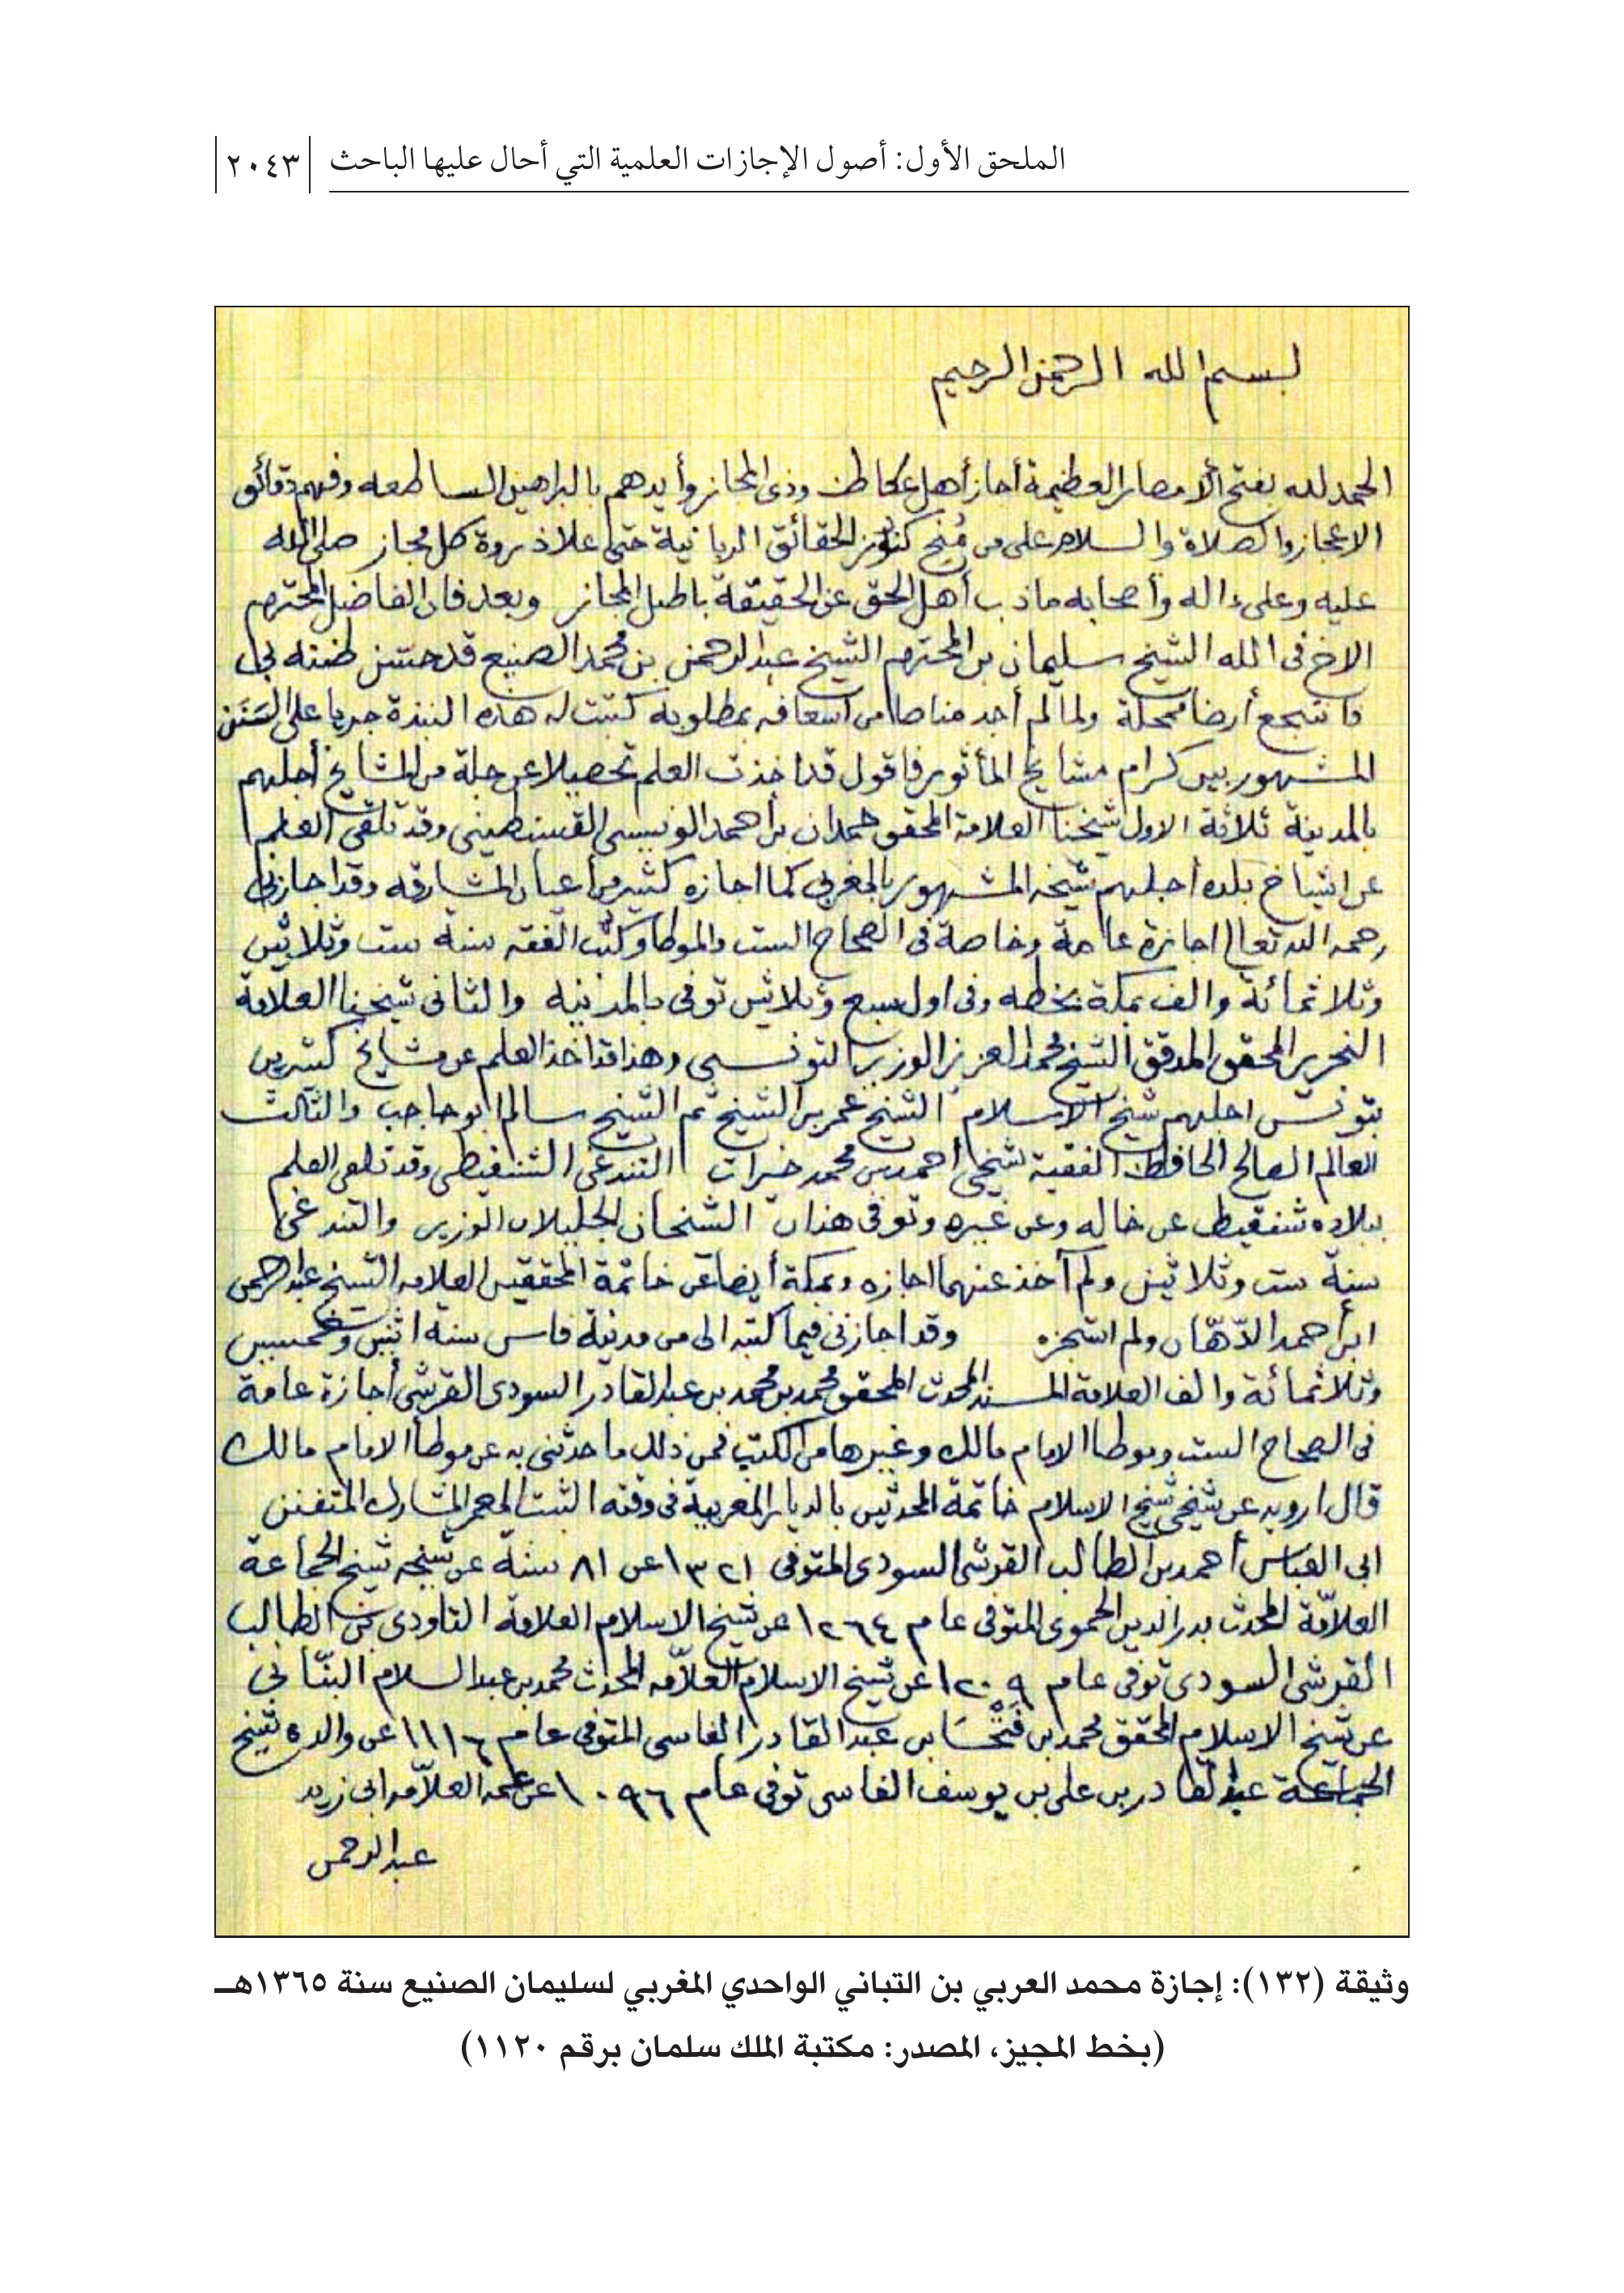 الملحق الأول: أصول الإجازات العلمية التي أحال عليها الباحث
٢٠٤٣
بسم الله الرحمن الرحيم
الحمد لله بفتح الأمصار العظيمة أجاز أهل عكاظ وذى المجاز وأيدهم بالبراهين الساطعه وفهم دقائق
الاعجاز والصلاة والسلام على من مُنح كنوز الحقائق الربانية حتى علا ذروة كل مجاز صلى الله
عليه وعلى ءاله وأصحابه ماذب أهل الحق عن الحقيقة باطل المجاز وبعد فان الفاضل المحترم
الاخ فى الله الشيخ سليمان بن المحترم الشيخ عبد الرحمن بن محمد الصنيع قد حسن ظنه بى
فانتجع أرضا ممحلة ولما لم أجد مناصا من اسعافه بمطلوبه كتبت له هذه النبذة جريا على السَنَن
المشهور بين كرام مشايخ المأثور فاقول قد اخذت العلم تحصيلا عن جلة من المشايخ أجلهم
بالمدينة ثلاثة الاول شيخنا العلامة المحقق حمدان بن أحمد الونيسى القسنطينى وقد تلقى العلم
عن اشياخ بلده أجلهم شيخه المشهور بالمغربى كما اجازه كثير من أعيان المشارقه وقد اجازنى
رحمه الله تعالى اجازة عامة وخاصة فى الصحاح الست والموطأ وكتب الفقه سنة ست وثلاثين
وثلاثمائة والف بمكة بخطه وفى اول سبع وثلاثين توفى بالمدينه والثانى شيخنا العلامة
النحرير المحقق المدقق الشيخ محمد العزيز الوزير التونسى وهذا قد اخذ العلم عن مشايخ كثيرين
بتونس اجلهم شيخ الاسلام الشيخ عمر بن الشيخ ثم الشيخ سالم ابو حاجب والثالث
العالم الصالح الحافظ الفقيه شيخى أحمد بن محمد خيرات التندغى الشنقيطى وقد تلقى العلم
ببلاده شنقيط عن خاله وعن غيره وتوفى هذان الشيخان الجليلان الوزير والتندغى
سنة ست وثلاثين ولم آخذ عنهما اجازه وبمكة أيضا عن خاتمة المحققين العلامه الشيخ عبد الرحمن
ابن أحمد الدّهّان ولم استجزه وقد اجازنى فيما كتبه الى من مدينة فاس سنة اثنين وخمسين
وثلاثمائة والف العلامة المسند المحدث المحقق محمد بن محمد بن عبد القادر السودى القرشى أجازة عامة
فى الصحاح الست وموطأ الامام مالك وغيرها من الكتب فمن ذلك ما حدثنى به عن موطأ الامام مالك
قال ارويه عن شيخى شيخ الاسلام خاتمة المحدثين بالديار المغربية فى وقته الثبت المعمر المشارك المتفنن
ابى العباس أحمد بن الطالب القرشى السودى المتوفى ١٣٢١ عن ٨١ سنة عن شيخه شيخ الجماعة
العلاّمة المحدث بدر الدين الحموى المتوفى عام ١٢٦٤ عن شيخ الاسلام العلامة التاودى بن الطالب
القرشى السودى توفى عام ١٢٠٩ عن شيخ الاسلام العلاّمه المحدث محمد بن عبد السلام البنّانى
عن شيخ الاسلام المحقق محمد بن فَتْحَا بن عبد القادر الفاسى المتوفى عام ١١١٦ عن والده شيخ
الجماعة عبد القادر بن على بن يوسف الفاسى توفى عام ١٠٩٦ عن عمه العلاّمه ابى زيد
عبد الرحمن
وثيقة (١٣٢): إجازة محمد العربي بن التباني الواحدي المغربي لسليمان الصنيع سنة ١٣٦٥هـ
(بخط المجيز، المصدر: مكتبة الملك سلمان برقم ١١٢٠)